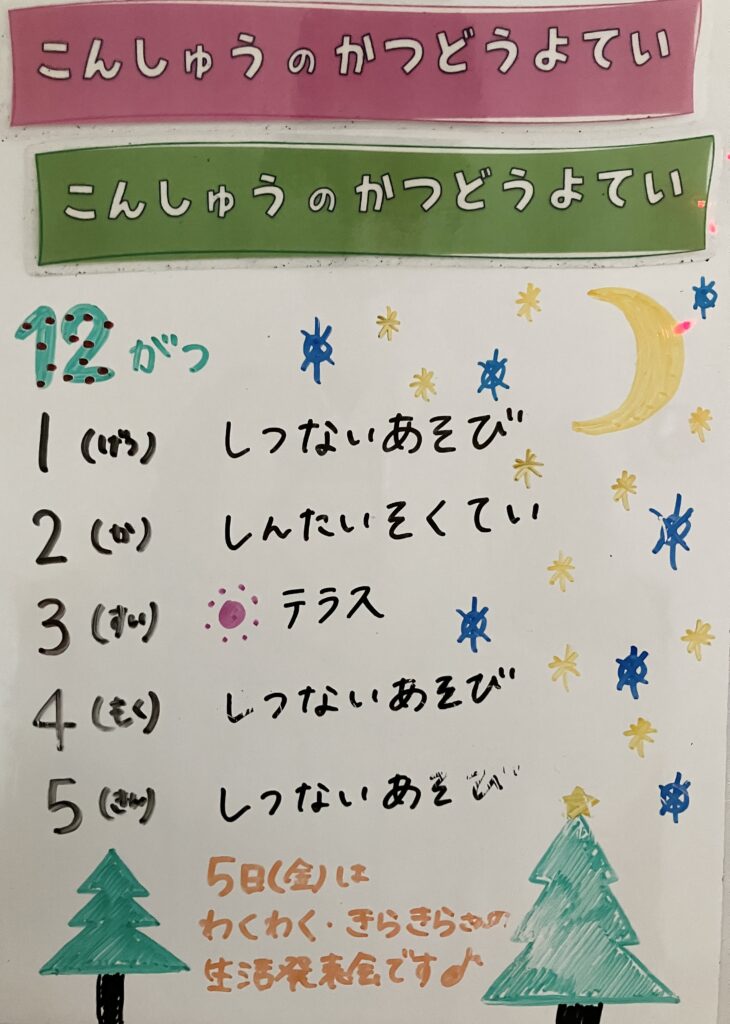 こんしゅうのかつどうよてい
こんしゅうのかつどうよてい
12がつ
1(げつ) しつないあそび
2(か) しんたいそくてい
3(すい) テラス
4(もく) しつないあそび
5(きん) しつないあそび
5日(金)は
わくわく・きらきらさんの
生活発表会です♪